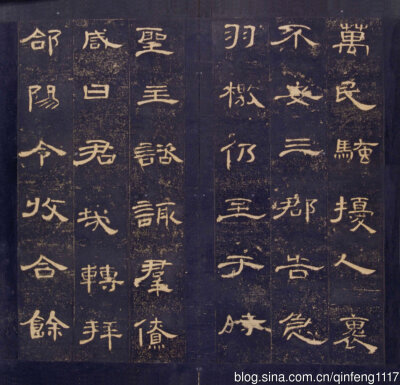 萬民騷擾人褱
不安三郡告急
羽檄仍至于時
聖主諮諏羣僚
咸曰君哉轉拜
郃陽令收合餘
blog.sina.com.cn/qinfeng1117